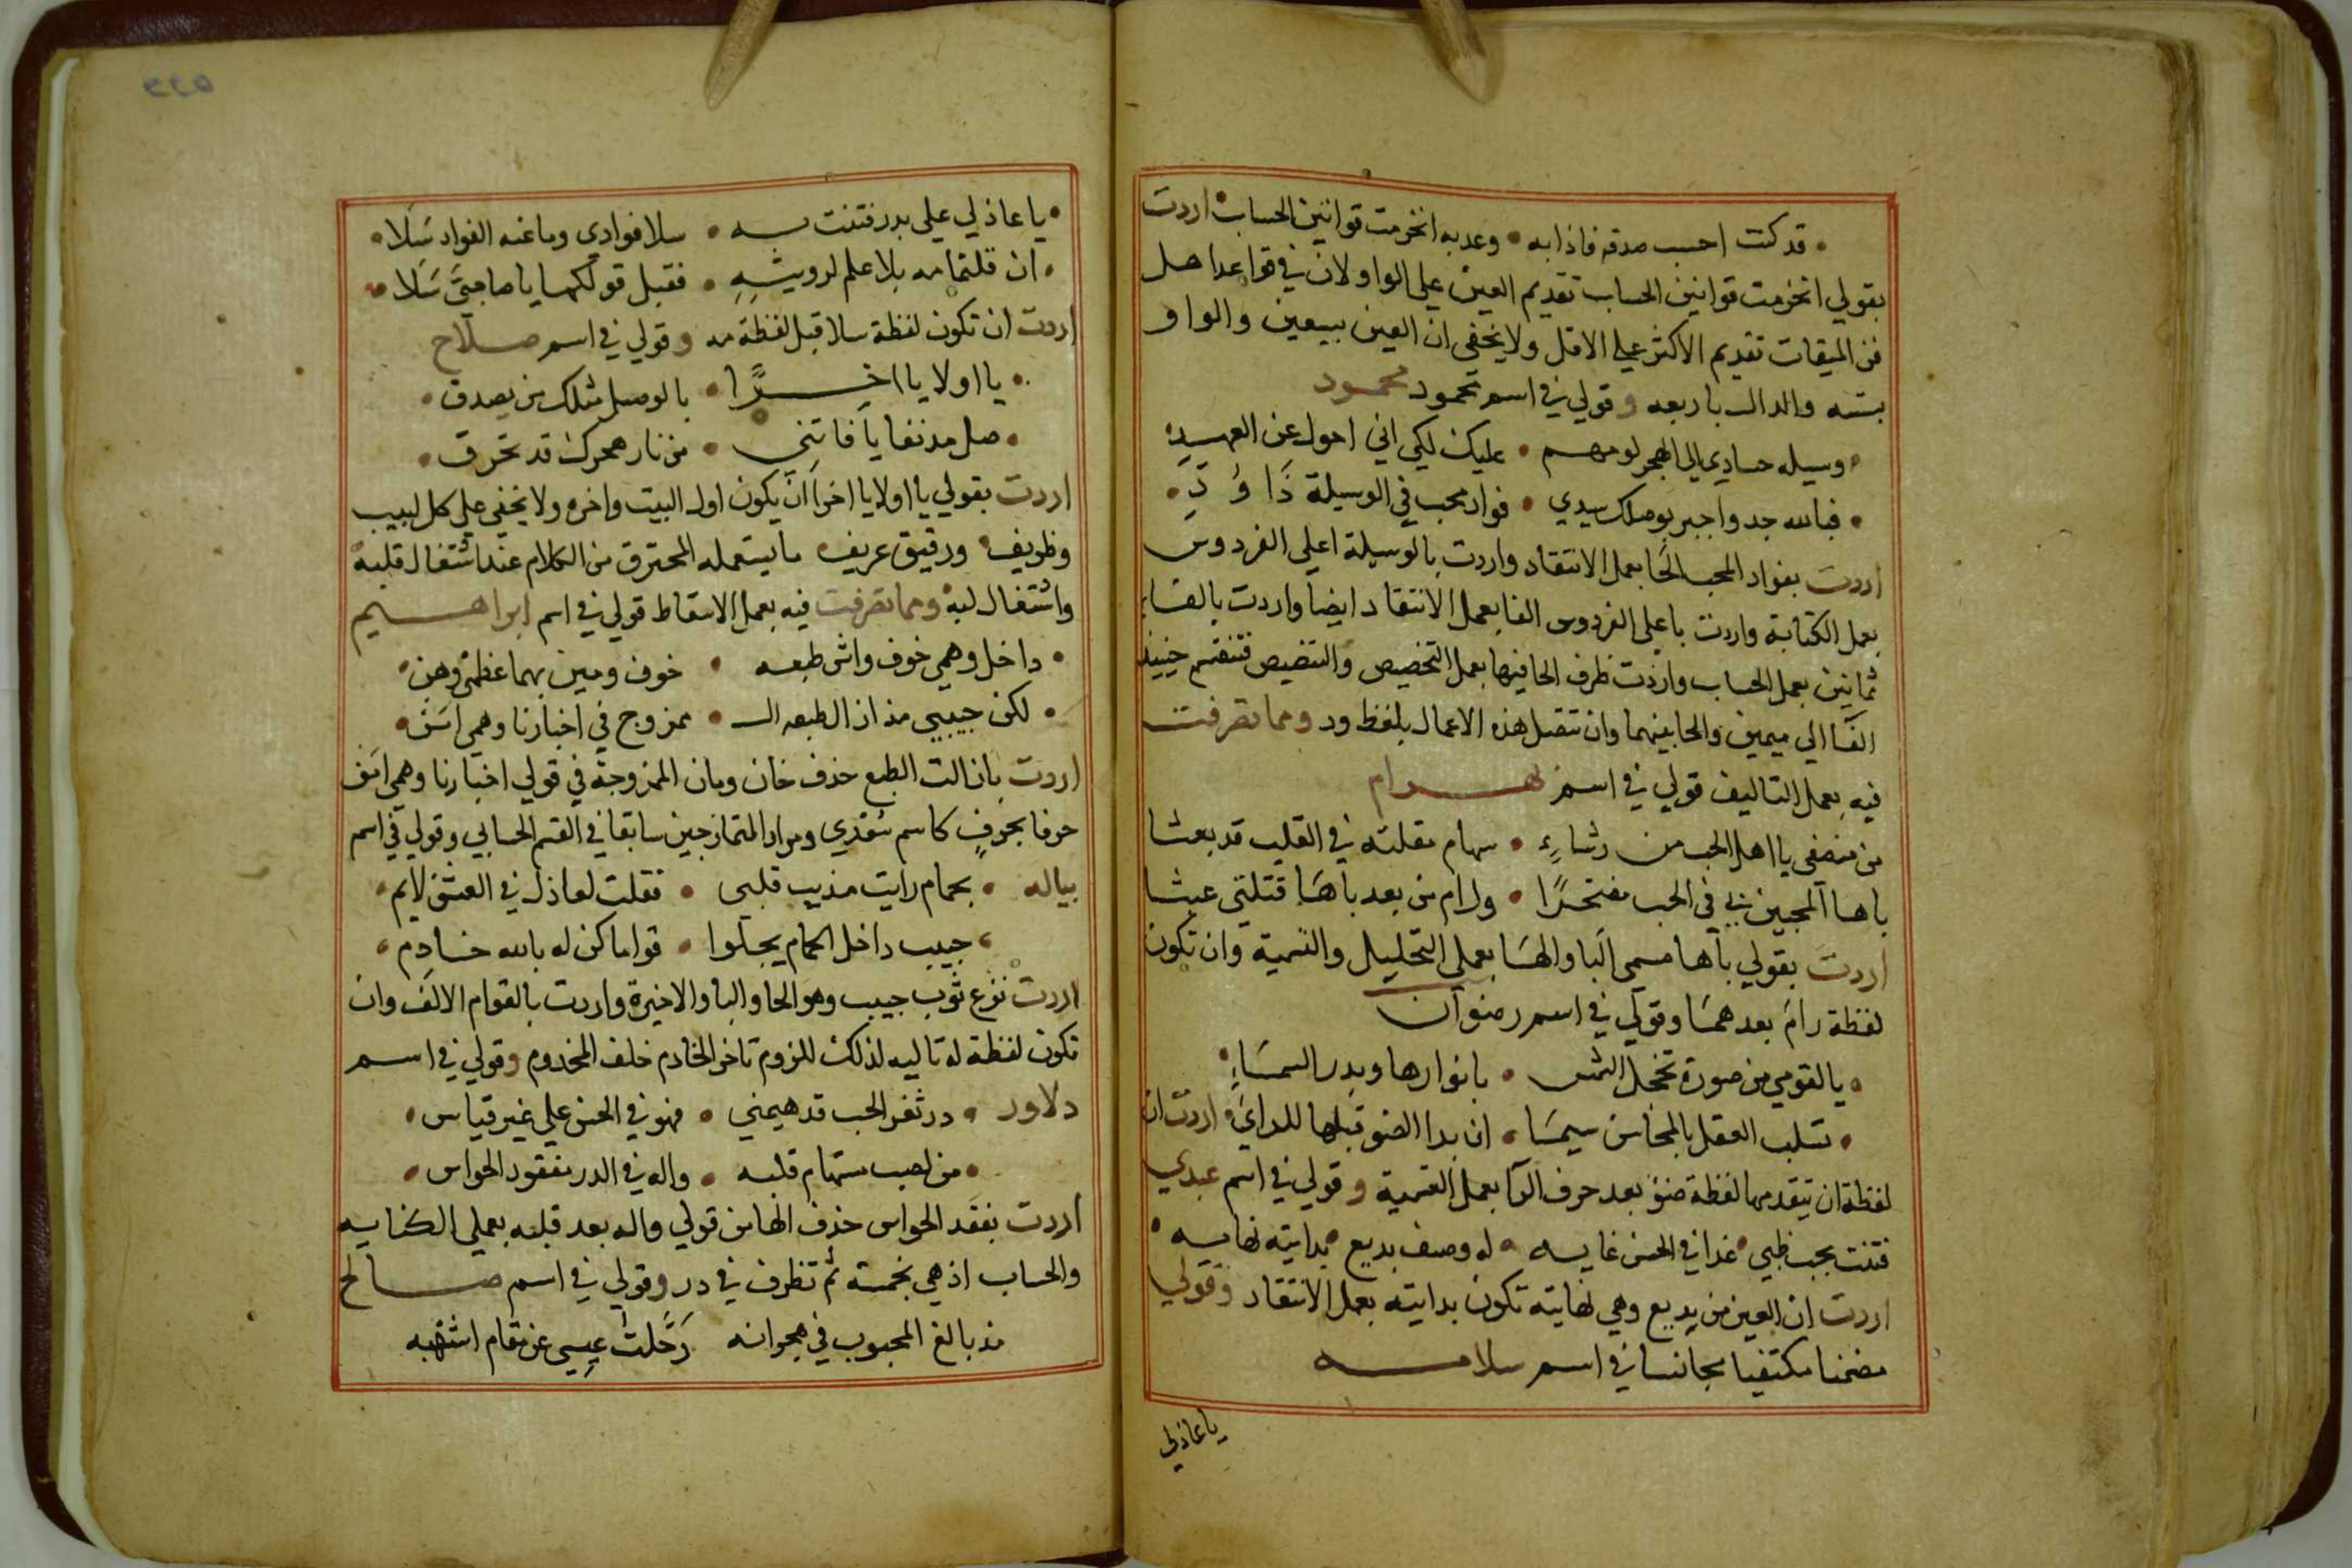 قد كنت احسب صدقه فاذا به • وعد به انخرمت قوانين الحساب اردت
بقولي انخرمت قوانين الحساب تقديم العين على الواو لان في قواعد اهل
فن الميقات تقديم الاكثر على الاقل ولا يخفى ان العين بسبعين والواو
بسته والدال باربعه وقولي في اسم محمود محمود
وسيله حسادي الى الهجر لومهم • عليك لكي اني احول عن العهد
• فبالله جد واجبر بوصلك سيدي • فواد محب في الوسيلة ذا ود •
اردت بفواد المحب الحا بعمل الانتقاد واردت بالوسيلة اعلى الفردوس
بعمل الكتابة واردت باعلى الفردوس الفا بعمل الانتقاد ايضا واردت بالفاء
ثمانين بعمل الحساب واردت ظرف الحا فيها بعمل التخصيص والتنصيص فتنقسم حينئذ
الفا الى ميمين والحا بينهما وان تتصل هذه الاعمال بلفظ ود ومما تصرفت
فيه بعمل التاليف قولي في اسم بهرام
من منصفي يا اهل الحب من رشاء • سهام مقلته في القلب قد بعثا
باها المحبين بي في الحب مفتخرا • ورام من بعد باها قتلتي عبثا
اردت بقولي باها مسمى البا والها بعملي التحليل والتسمية وان تكون
لفظة رام بعدهما وقولي في اسم رضوان
• يا لقومي من صورة تخجل الشمس • بانوارها وبدر السماء
• تسلب العقل بالمحاسن سيما • ان بدا الضو قبلها للرائي اردت ان
لفظة ان يتقدمها لفظة ضو بعد حرف الرا بعمل التسمية وقولي في اسم عبدي
فتنت بحب ظبي غدا في الحسن غايه • له وصف بديع بدايته نهايه
اردت ان العين من بديع وهي نهايته تكون بدايته بعمل الانتقاد وقولي
مضمنا مكتفيا مجانسا في اسم سلامه
يا عاذلي
• يا عاذلي على بدر فتنت به • سلا فوادي وما عنه الفواد سلا •
• ان قلتما مه بلا علم لرويته • فقبل قولكما يا صاحبي سلا •
اردت ان تكون لفظة سلا قبل لفظة مه وقولي في اسم صلاح
• يا اولا يا اخرا • بالوصل مثلك من يصدق •
• صل مدنفا يا فاتني • من نار هجرك قد تحرق •
اردت بقولي يا اولا يا اخرا ان يكون اول البيت واخره ولا يخفى على كل لبيب
وظريف ورقيق عريف ما يستعمله المحترق من الكلام عند اشتغال قلبه
واشتغال لبه ومما تصرفت فيه بعمل الاسقاط قولي في اسم ابراهيم
• داخل وهمي خوف واش طبعه • خوف ومين بهما عظمي وهن
• لكن حبيبي مذ ازال طبعه ال • ممزوج في اخبارنا وهمي امن •
اردت بازالت الطبع حذف خان ومان الممزوجة في قولي اخبارنا وهمي امن
حرفا بحرف كاسم سعدي ومراد المتمازجين سابقا في القسم الحسابي وقولي في اسم
بياله • بحمام رايت مذيب قلبي • فقلت لعاذل في العشق لايم
حبيب داخل الحمام يجلوا • قواما كن له بالله خادم
اردت نزع ثوب حبيب وهو الحا والبا والاخيرة واردت بالقوام الالف وان
تكون لفظة له تاليه لذلك للزوم تاخر الخادم خلف المخدوم وقولي في اسم
دلاور • در ثغر الحب قد هيمني • فهو في الحسن على غير قياس •
• من لصب مستهام قلبه • واله في الدر مفقود الحواس •
اردت بفقد الحواس حذف الها من قولي واله بعد قلبه بعملي الكنايه
والحساب اذ هي بخمسة ثم تظرف في در وقولي في اسم صالح
مذ بالغ المحبوب في هجرانه رحلت عيسي عن مقام اشتهبه